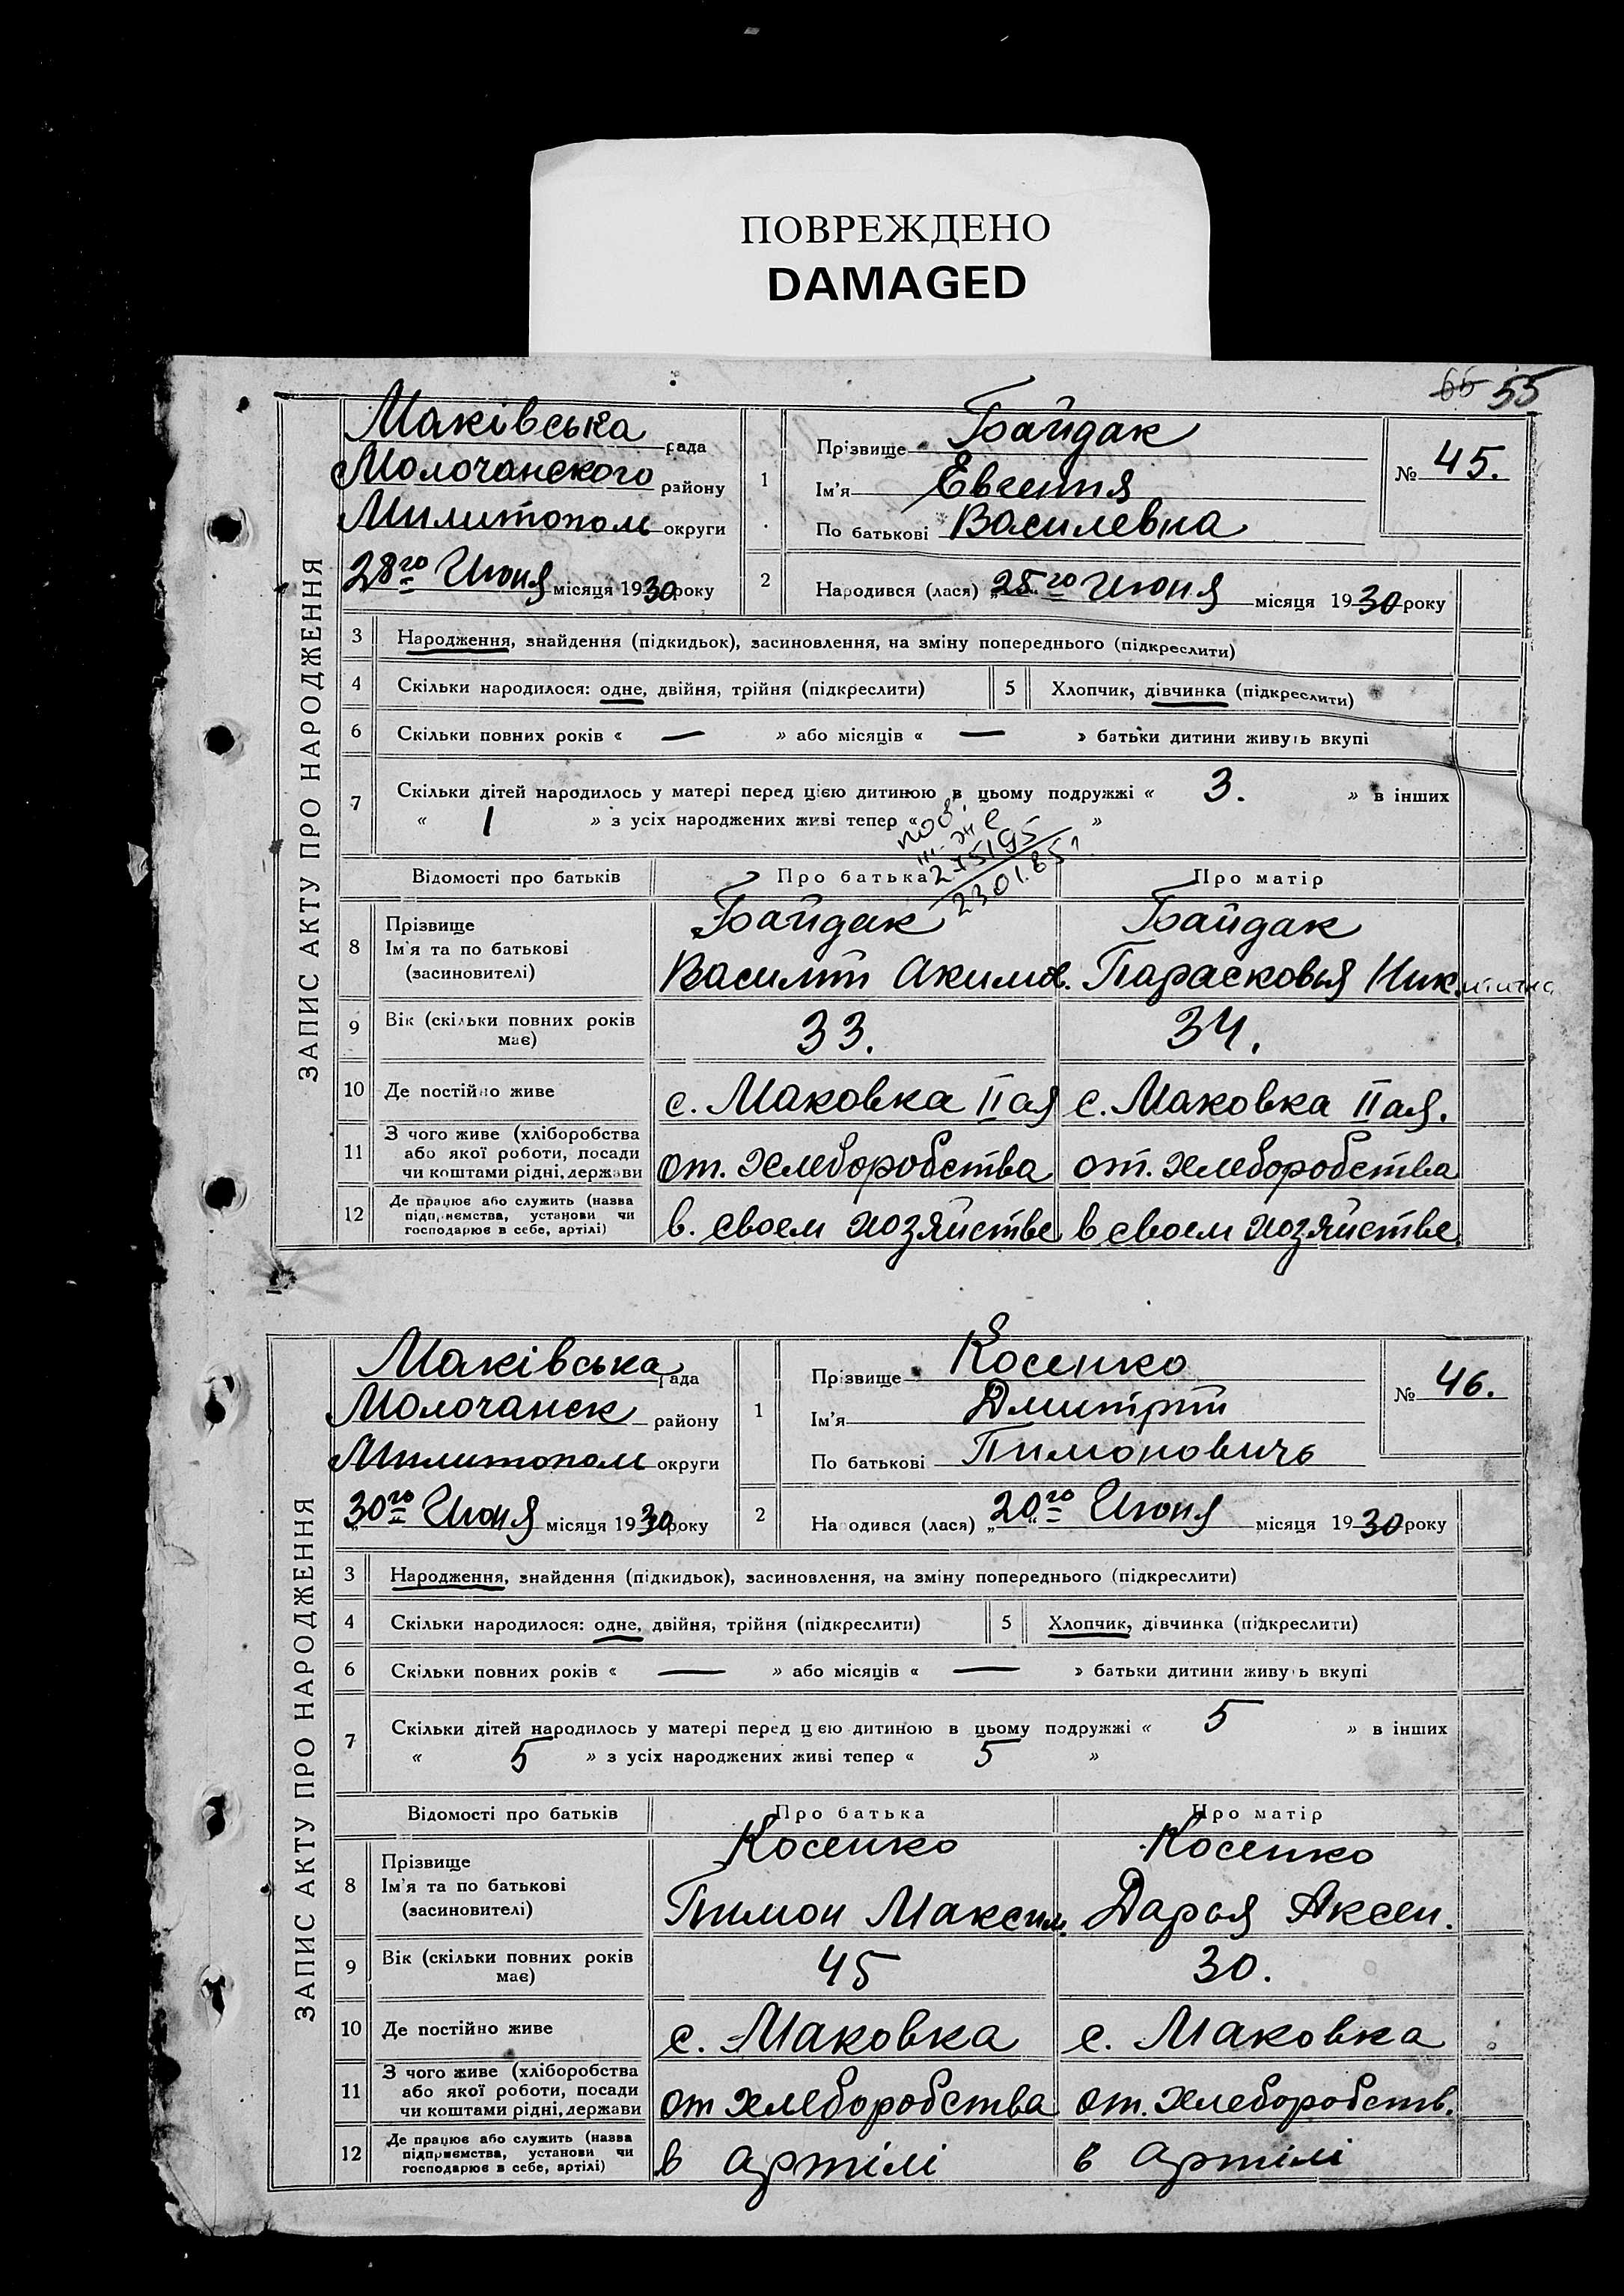 ПОВРЕЖДЕНО
DAMAGED
66 55
ЗАПИС АКТУ ПРО НАРОДЖЕННЯ
Маківська рада
Молочанского району
Милитопол округи
28го Июня місяця 1930 року
1 Прізвище Байдак
Ім'я Евгения
По батькові Василевна
№ 45.
2 Народився (лася) „25.го Июня місяця 1930 року
3 Народження, знайдення (підкидьок), засиновлення, на зміну попереднього (підкреслити)
4 Скільки народилося: одне, двійня, трійня (підкреслити) 5 Хлопчик, дівчинка (підкреслити)
6 Скільки повних років « — » або місяців « — » батьки дитини живуть вкупі
7 Скільки дітей народилось у матері перед цією дитиною в цьому подружжі « 3. » в інших
« 1 » з усіх народжених живі тепер « »
275195
23.01.85
Відомості про батьків Про батька Про матір
8 Прізвище Байдак Байдак
Ім'я та по батькові
(засиновителі) Василий Акимов. Парасковья Ник
9 Вік (скільки повних років має) 33. 34.
10 Де постійно живе с. Маковка II ая с. Маковка II ая.
11 З чого живе (хліборобства
або якої роботи, посади
чи коштами рідні, держави от. хлеборобства от. хлеборобства
12 Де працює або служить (назва
підприємства, установи чи
господарює в себе, артілі) в. своем хозяйстве в своем хозяйстве.
ЗАПИС АКТУ ПРО НАРОДЖЕННЯ
Маківська рада
Молочанск району
Милитопол округи
„30го Июня місяця 1930 року
1 Прізвище Косенко
Ім'я Дмитрий
По батькові Тимоновичь
№ 46.
2 Народився (лася) „20.го Июня місяця 1930 року
3 Народження, знайдення (підкидьок), засиновлення, на зміну попереднього (підкреслити)
4 Скільки народилося: одне, двійня, трійня (підкреслити) 5 Хлопчик, дівчинка (підкреслити)
6 Скільки повних років « — » або місяців « — » батьки дитини живуть вкупі
7 Скільки дітей народилось у матері перед цією дитиною в цьому подружжі « 5 » в інших
« 5 » з усіх народжених живі тепер « 5 »
Відомості про батьків Про батька Про матір
8 Прізвище Косенко Косенко
Ім'я та по батькові
(засиновителі) Тимон Максим. Дарья Аксен.
9 Вік (скільки повних років має) 45 30.
10 Де постійно живе с. Маковка с. Маковка
11 З чого живе (хліборобства
або якої роботи, посади
чи коштами рідні, держави от хлеборобства от. хлеборобств.
12 Де працює або служить (назва
підприємства, установи чи
господарює в себе, артілі) в артілі в артілі